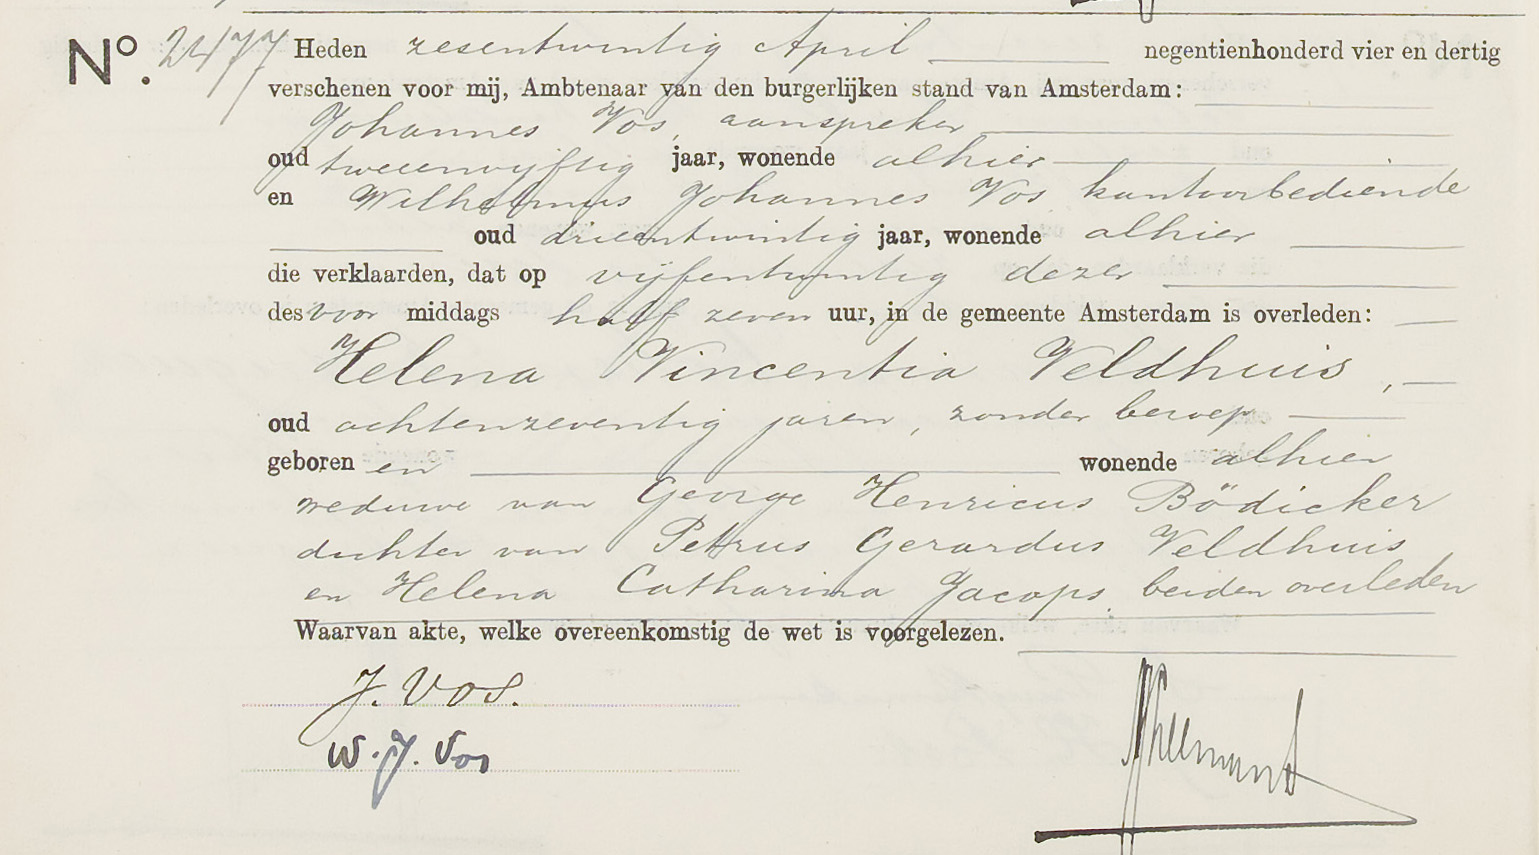 No. 2477 Heden zesentwintig April negentienhonderd vier en dertig
verschenen voor mij, Ambtenaar van den burgerlijken stand van Amsterdam:
Johannes Vos, aanspreker
oud tweeenvijftig jaar, wonende alhier
en Wilhelmus Johannes Vos kantoorbediende
oud drieentwintig jaar, wonende alhier
die verklaarden, dat op vijfentwintig dezer
des voor middags half zeven uur, in de gemeente Amsterdam is overleden:
Helena Vincentia Veldhuis,
oud achtenzeventig jaren, zonder beroep
geboren en wonende alhier
weduwe van George Henricus Bödicker
dochter van Petrus Gerardus Veldhuis
en Helena Catharina Jacops, beiden overleden
Waarvan akte, welke overeenkomstig de wet is voorgelezen.
J. Vos.
W. J. Vos